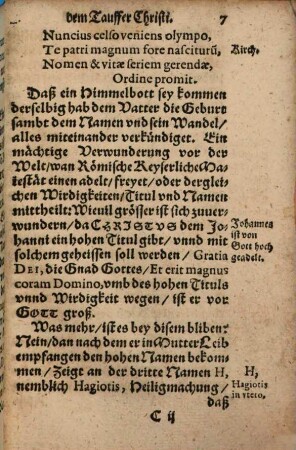 dem Tauffer Christi. 7
Nuncius celso veniens olympo,
Te patri magnum fore nasciturũ, Kirch.
Nomen & vitæ seriem gerendæ,
Ordine promit.
Daß ein Himmelbott sey kommen
derselbig hab dem Vatter die Geburt
sambt dem Namen vnd sein Wandel/
alles miteinander verkündiget. Ein
mächtige Verwunderung vor der
Welt/wan Römische Keyserliche Ma-
testät einen adelt/freyet/oder derglei-
chen Wirdigkeiten/Titul vnd Namen
mittheilt: Wievil grösser ist sich zuver-
wundern/da CHRISTVS dem Jo-
hanni ein hohen Titul gibt/vnnd mit
solchem geheissen soll werden/Gratia
DEI, die Gnad Gottes/Et erit magnus
coram Domino, vmb des hohen Tituls
vnnd Wirdigkeit wegen/ist er vor
GOTT groß.
Johannes
ist von
Gott hoch
geadelt.
Was mehr/ist es bey disem bliben?
Nein/dan nach dem er in Mutter Leib
empfangen den hohen Namen bekom-
men/Zeigt an der dritte Namen H,
nemblich Hagiotis, Heiligmachung/
daß
H,
Hagiotis
in vtero.
C ij